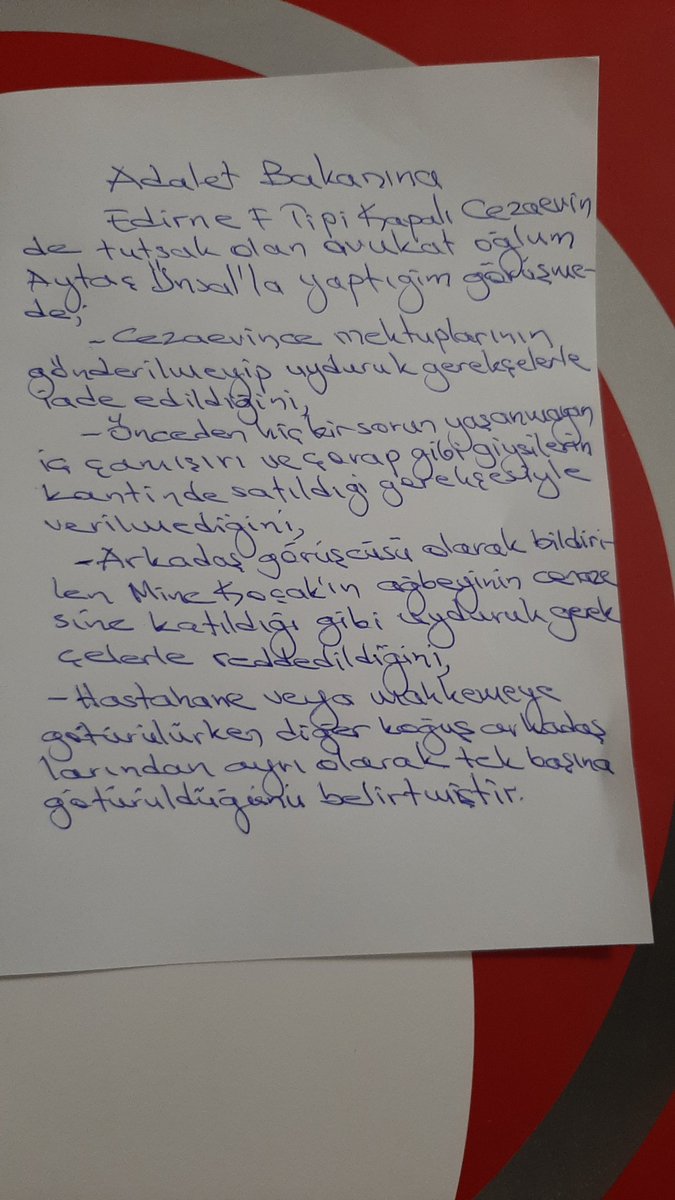 Adalet Bakanına
Edirne F Tipi Kapalı Cezaevin
de tutsak olan avukat oğlum
Aytaç Ünsal'la yaptığım görüşme-
de;
- Cezaevince mektuplarının
gönderilmeyip uyduruk gerekçelerle
iade edildiğini,
- Önceden hiç bir sorun yaşanmayan
iç çamışırı ve çorap gibi giysilerin
kantinde satıldığı gerekçesiyle
verilmediğini,
- Arkadaş görüşcüsü olarak bildiri-
len Mine Koçak'ın ağbeyinin cenaze
sine katıldığı gibi uyduruk gerek
çelerle reddedildiğini,
- Hastahane veya mahkemeye
götürülürken diğer koğuş arkadaş
larından ayrı olarak tek başına
götürüldüğünü belirtmiştir.